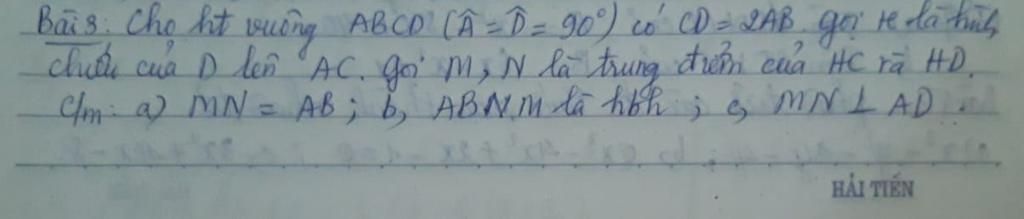 Bài 3: Cho ht vuông ABCD (Â = D̂ = 90°) có CD = 2AB. gọi H là hình
chiếu của D lên AC. gọi M, N là trung điểm của HC và HD.
C/m: a) MN = AB; b, ABNM là hbh; c, MN ⊥ AD.
HẢI TIẾN